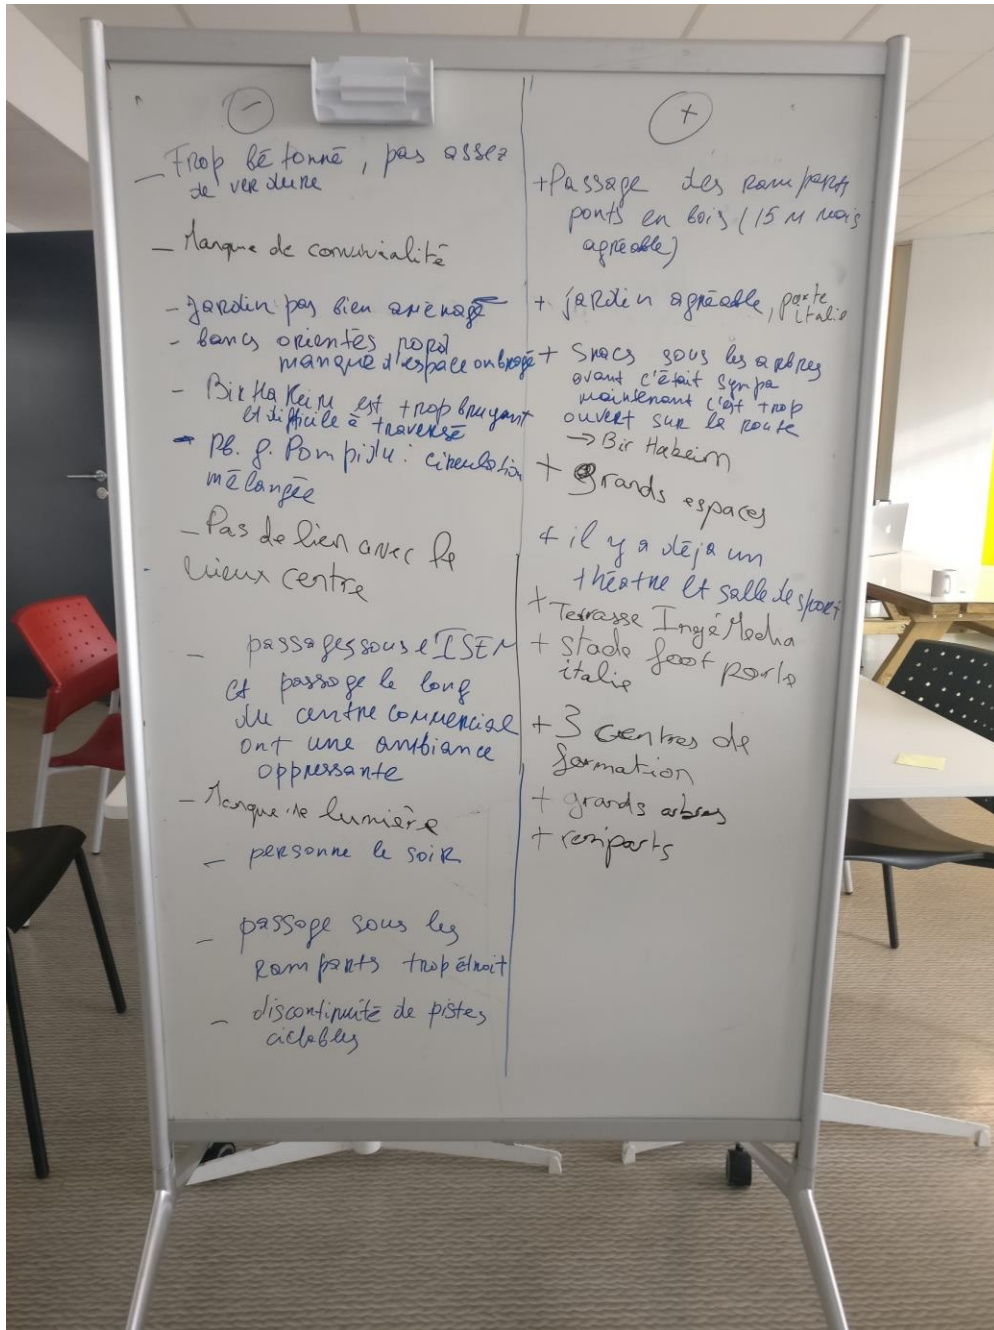 -
_ Trop bétonné, pas assez
de verdure
_ Manque de convivialité
- Jardin pas bien aménagé
- bancs orientés nord
manque d'espace ombragé
- Bir Hakeim est trop bruyant
et difficile à traversé
- Pb. g. Pompidu : circulation
mélangée
_ Pas de lien avec le
vieux centre
_ passages sous l'ISEN
et passage le long
du centre commercial
ont une ambiance
oppressante
- Manque de lumière
_ personne le soir
_ passage sous les
remparts trop étroit
_ discontinuité de pistes
ciclables
+
+ Passage des remparts
ponts en bois (15 M mais
agréable)
+ jardin agréable, porte
italie
+ Snacs sous les arbres
avant c'était sympa
maintenant c'est trop
ouvert sur la route
→ Bir Hakeim
+ grands espaces
+ il y a déjà un
théatre et salle de sport
+ Terrasse IngéMedia
+ stade foot porte
italie
+ 3 centres de
formation
+ grands arbres
+ remparts